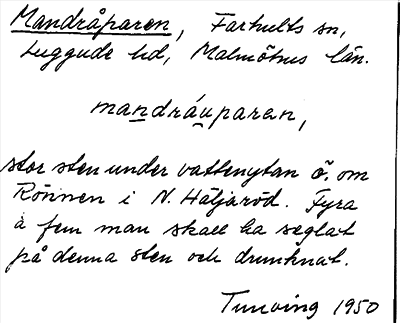 Mandråparen, Farhults sn,
Luggude hd, Malmöhus län.
mandráu̯paren,
stor sten under vattenytan ö. om
Rönnen i N. Häljaröd. Fyra
à fem man skall ha seglat
på denna sten och drunknat.
Tunving 1950